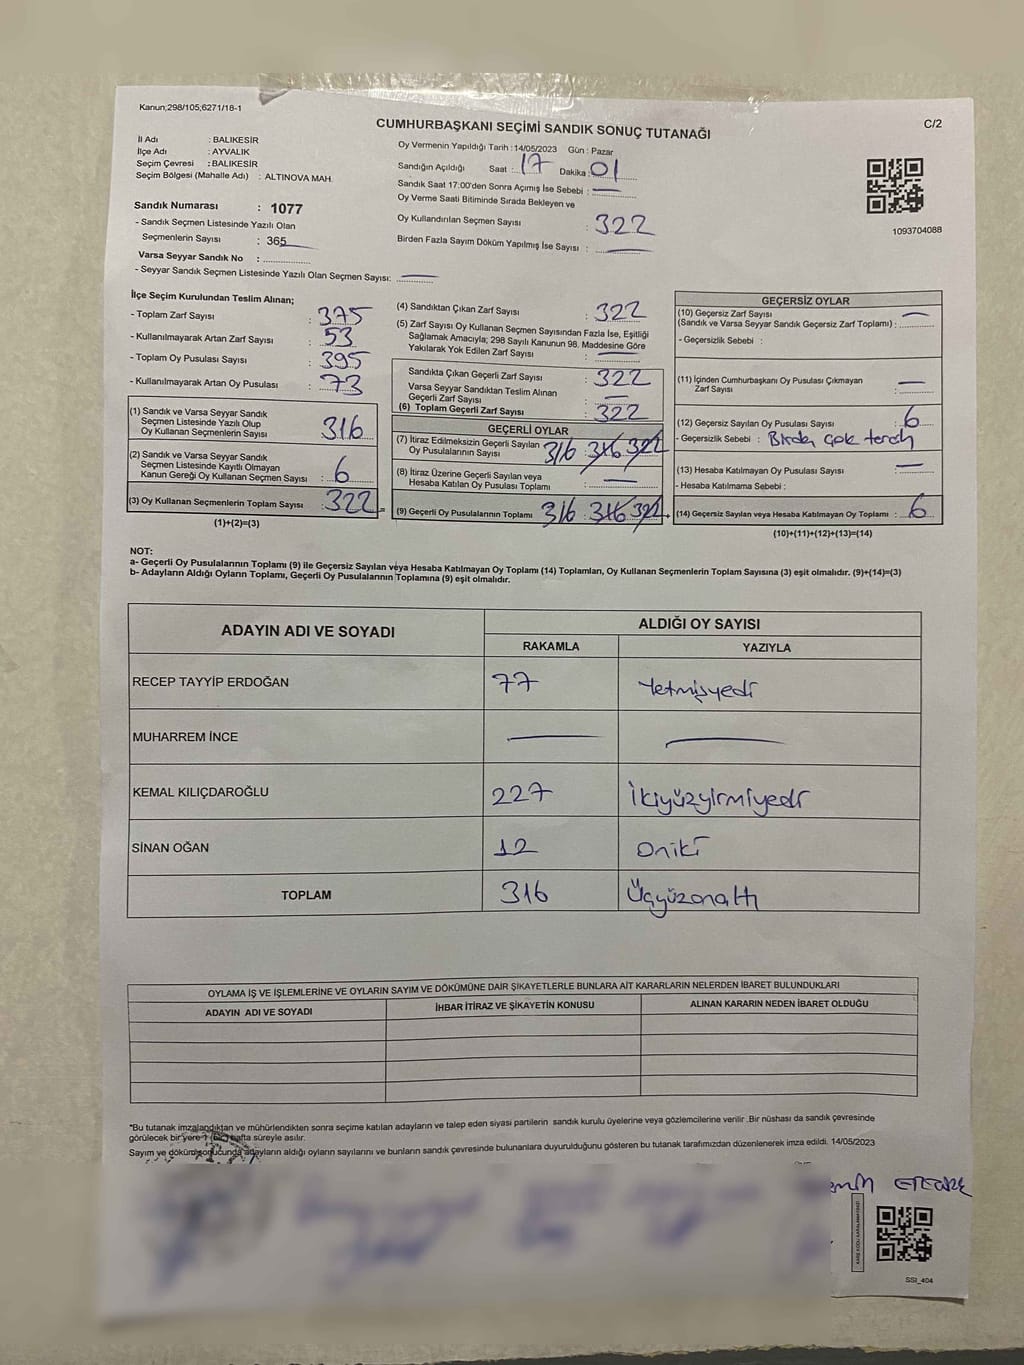 Kanun;298/105;6271/18-1
C/2
CUMHURBAŞKANI SEÇİMİ SANDIK SONUÇ TUTANAĞI
İl Adı : BALIKESİR
İlçe Adı : AYVALIK
Seçim Çevresi : BALIKESİR
Seçim Bölgesi (Mahalle Adı) : ALTINOVA MAH.
Sandık Numarası : 1077
- Sandık Seçmen Listesinde Yazılı Olan
Seçmenlerin Sayısı : 365
Varsa Seyyar Sandık No :
- Seyyar Sandık Seçmen Listesinde Yazılı Olan Seçmen Sayısı: —
Oy Vermenin Yapıldığı Tarih :14/05/2023 Gün : Pazar
Sandığın Açıldığı Saat : 17 Dakika : 01
Sandık Saat 17:00'den Sonra Açımış İse Sebebi : —
Oy Verme Saati Bitiminde Sırada Bekleyen ve
Oy Kullandırılan Seçmen Sayısı : 322
Birden Fazla Sayım Döküm Yapılmış İse Sayısı : —
1093704088
İlçe Seçim Kurulundan Teslim Alınan;
- Toplam Zarf Sayısı : 375
- Kullanılmayarak Artan Zarf Sayısı : 53
- Toplam Oy Pusulası Sayısı : 395
- Kullanılmayarak Artan Oy Pusulası : 73
(1) Sandık ve Varsa Seyyar Sandık
Seçmen Listesinde Yazılı Olup
Oy Kullanan Seçmenlerin Sayısı 316
(2) Sandık ve Varsa Seyyar Sandık
Seçmen Listesinde Kayıtlı Olmayan
Kanun Gereği Oy Kullanan Seçmen Sayısı : 6
(3) Oy Kullanan Seçmenlerin Toplam Sayısı : 322
(1)+(2)=(3)
(4) Sandıktan Çıkan Zarf Sayısı : 322
(5) Zarf Sayısı Oy Kullanan Seçmen Sayısından Fazla İse, Eşitliği
Sağlamak Amacıyla; 298 Sayılı Kanunun 98. Maddesine Göre
Yakılarak Yok Edilen Zarf Sayısı : —
Sandıkta Çıkan Geçerli Zarf Sayısı : 322
Varsa Seyyar Sandıktan Teslim Alınan
Geçerli Zarf Sayısı : —
(6) Toplam Geçerli Zarf Sayısı : 322
GEÇERLİ OYLAR
(7) İtiraz Edilmeksizin Geçerli Sayılan
Oy Pusulalarının Sayısı 316 : 316 322
(8) İtiraz Üzerine Geçerli Sayılan veya
Hesaba Katılan Oy Pusulası Toplamı : —
(9) Geçerli Oy Pusulalarının Toplamı 316 : 316 322
GEÇERSİZ OYLAR
(10) Geçersiz Zarf Sayısı —
(Sandık ve Varsa Seyyar Sandık Geçersiz Zarf Toplamı) :
- Geçersizlik Sebebi :
(11) İçinden Cumhurbaşkanı Oy Pusulası Çıkmayan
Zarf Sayısı : —
(12) Geçersiz Sayılan Oy Pusulası Sayısı : 6
- Geçersizlik Sebebi : Birden çok tercih
(13) Hesaba Katılmayan Oy Pusulası Sayısı : —
- Hesaba Katılmama Sebebi :
(14) Geçersiz Sayılan veya Hesaba Katılmayan Oy Toplamı : 6
(10)+(11)+(12)+(13)=(14)
NOT:
a- Geçerli Oy Pusulalarının Toplamı (9) ile Geçersiz Sayılan veya Hesaba Katılmayan Oy Toplamı (14) Toplamları, Oy Kullanan Seçmenlerin Toplam Sayısına (3) eşit olmalıdır. (9)+(14)=(3)
b- Adayların Aldığı Oyların Toplamı, Geçerli Oy Pusulalarının Toplamına (9) eşit olmalıdır.
ADAYIN ADI VE SOYADI
ALDIĞI OY SAYISI
RAKAMLA YAZIYLA
RECEP TAYYİP ERDOĞAN 77 Yetmişyedi
MUHARREM İNCE — —
KEMAL KILIÇDAROĞLU 227 İkiyüzyirmiyedi
SİNAN OĞAN 12 Oniki
TOPLAM 316 Üçyüzonaltı
OYLAMA İŞ VE İŞLEMLERİNE VE OYLARIN SAYIM VE DÖKÜMÜNE DAİR ŞİKAYETLERLE BUNLARA AİT KARARLARIN NELERDEN İBARET BULUNDUKLARI
ADAYIN ADI VE SOYADI İHBAR İTİRAZ VE ŞİKAYETİN KONUSU ALINAN KARARIN NEDEN İBARET OLDUĞU
*Bu tutanak imzalandıktan ve mühürlendikten sonra seçime katılan adayların ve talep eden siyasi partilerin sandık kurulu üyelerine veya gözlemcilerine verilir .Bir nüshası da sandık çevresinde
görülecek bir yere 1 (bir) hafta süreyle asılır.
Sayım ve döküm sonucunda adayların aldığı oyların sayılarını ve bunların sandık çevresinde bulunanlara duyurulduğunu gösteren bu tutanak tarafımızdan düzenlenerek imza edildi. 14/05/2023
SSI_404